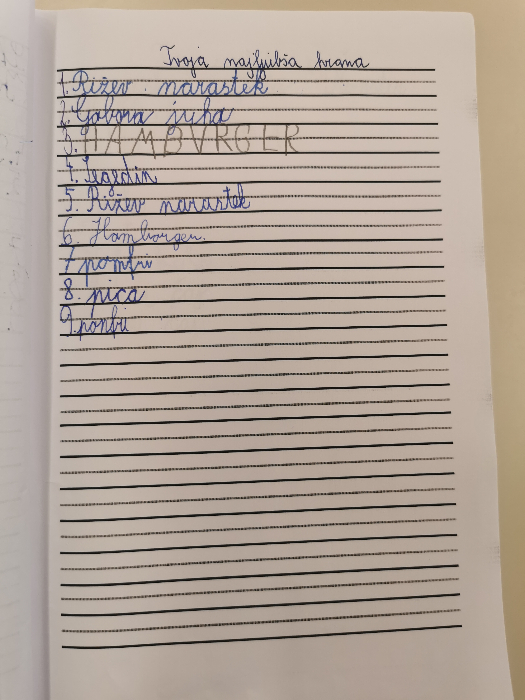 Tvoja najljubša hrana
1. Rižev narastek
2. Gobova juha
3. HAMBURGER
4. Segedin
5. Rižev narastek
6. Hamburger.
7. pomfri
8. pica
9. ponfri